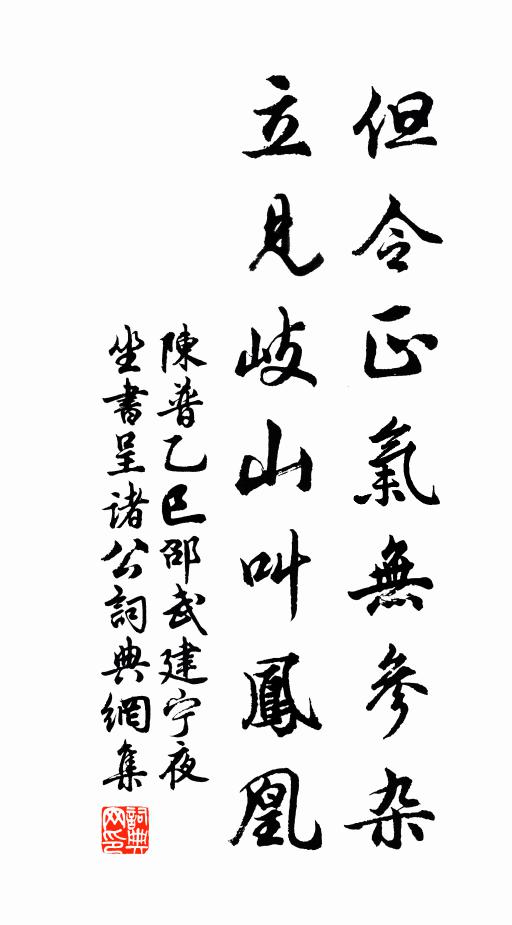 但令正氣無參杂
立見岐山叫鳳凰
陳普乙巳邵武建宁夜
坐書呈诸公詞典網集
詞典
网印